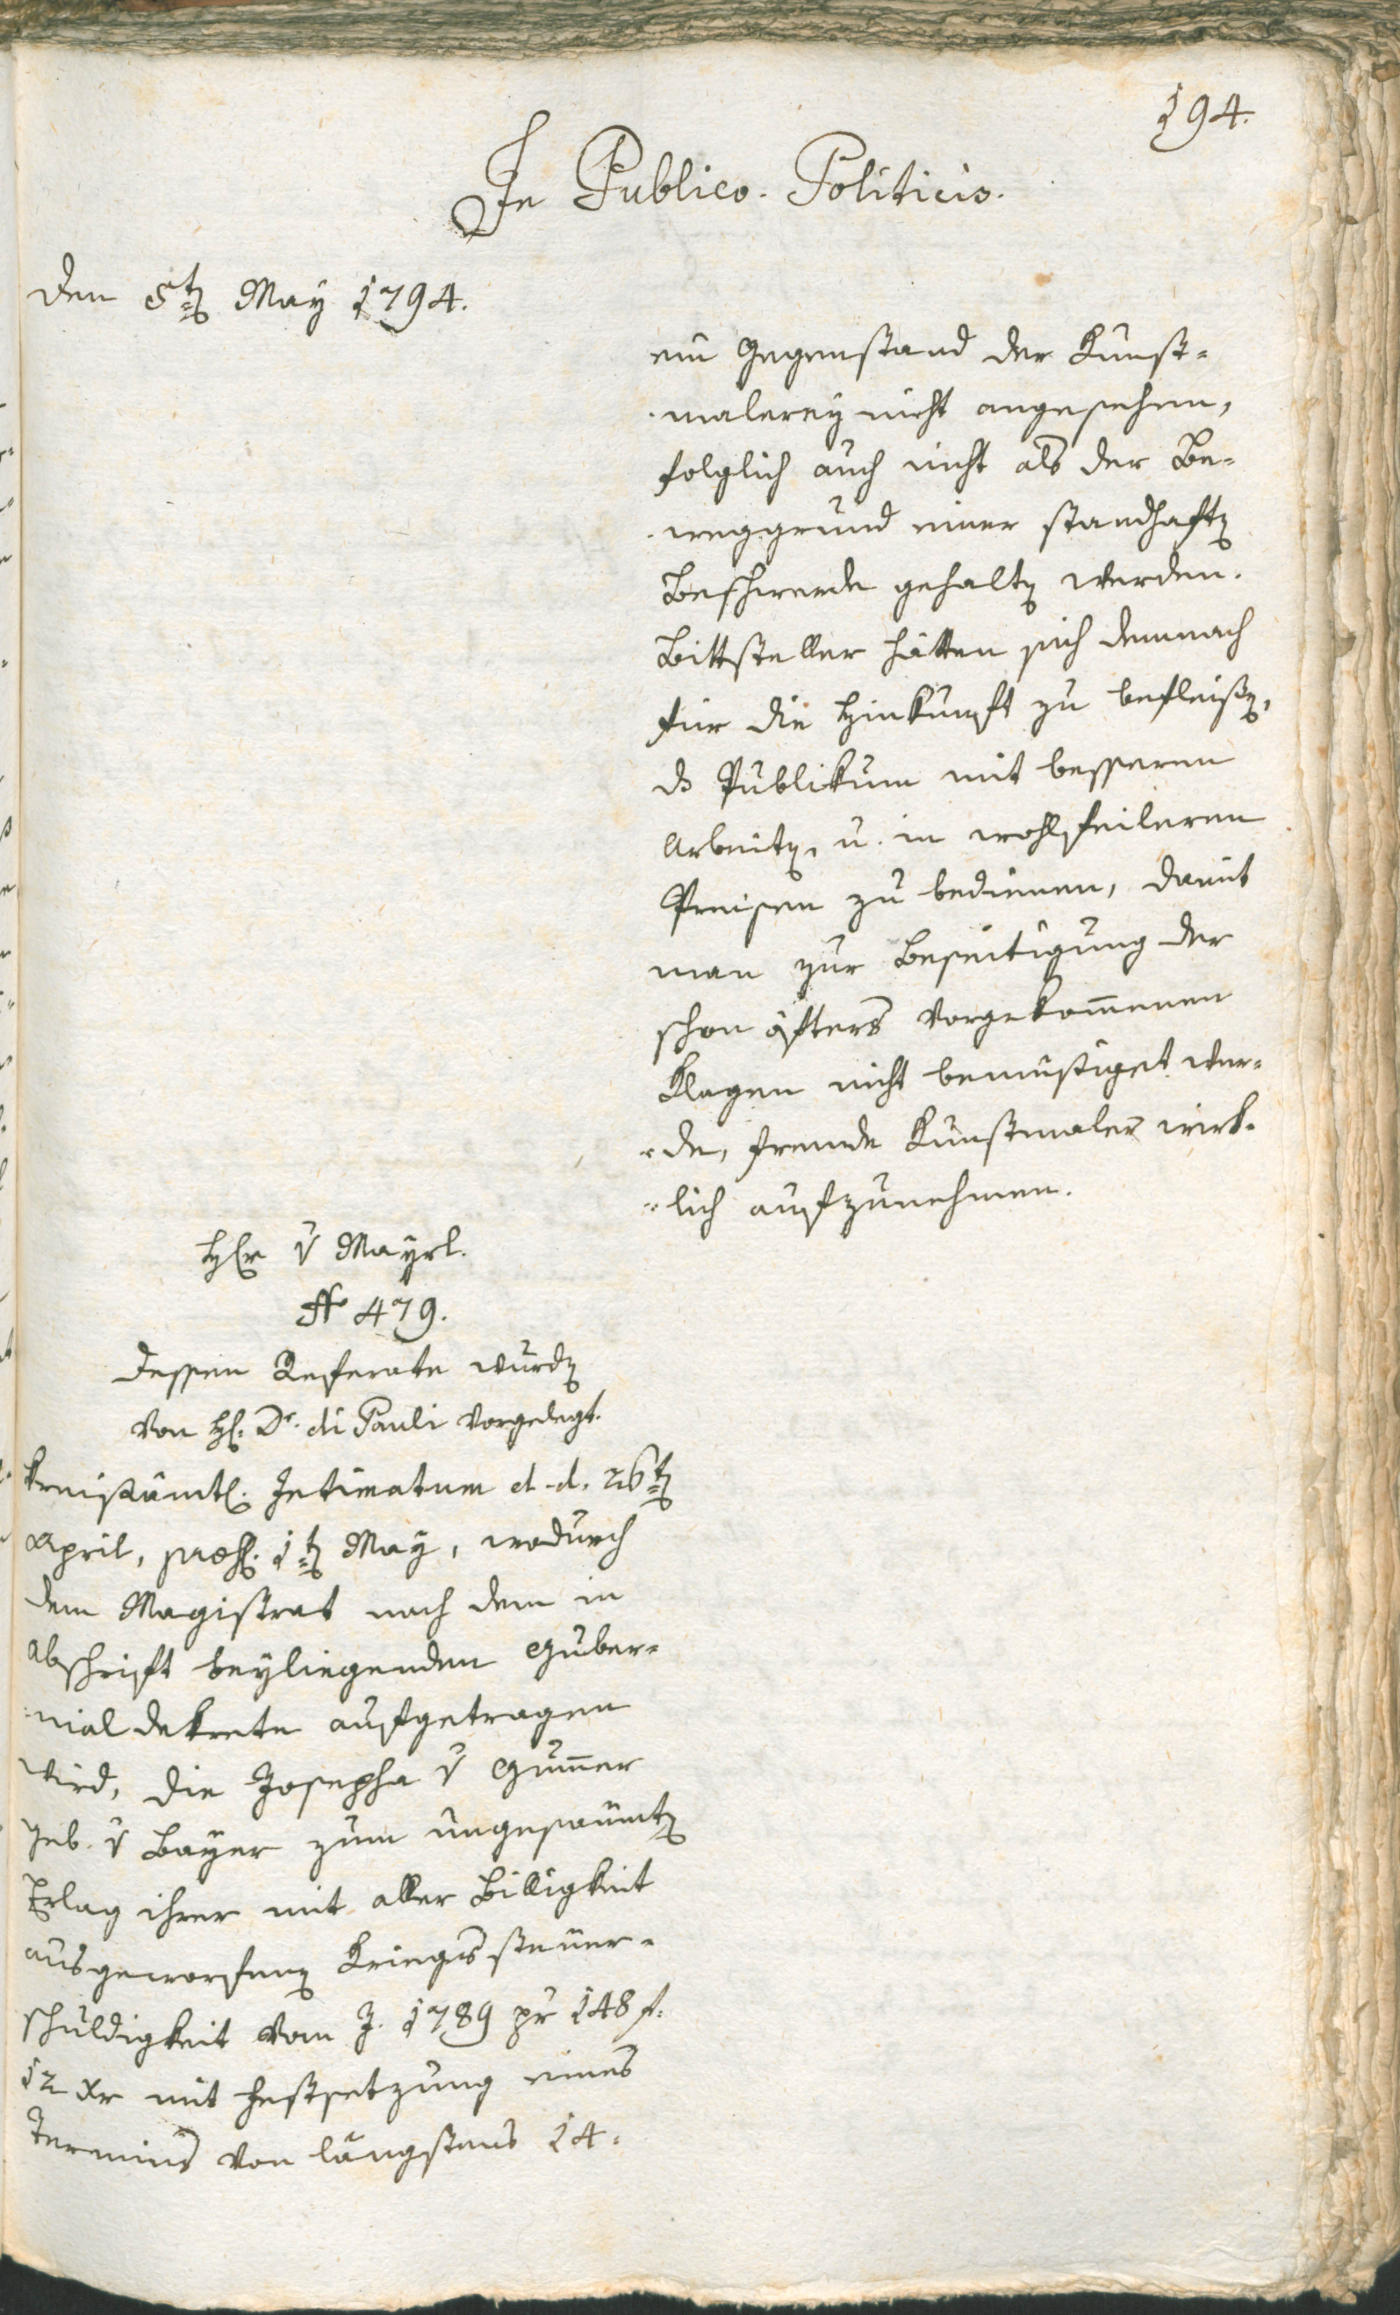 194.
In Publico-Politicis.
den 5t= May 1794.
ein Gegenstand der Kunst=
malerey nicht angesehen,
folglich auch nicht als der Be=
weggrund einer standhaften
Beschwerde gehalten werden.
Bittsteller hätten sich demnach
für die Hinkunft zu befleißen,
ds Publikum mit besseren
Arbeiten, u. in wohlfeileren
Preisen zu bedienen, damit
man zur Beseitigung der
schon öfters vorgekom̅enen
Klagen nicht bemüßiget wer=
=de, fremde Kunstmaler wirk=
=lich aufzunehmen.
Hr v Mayrl.
No 479.
Dessen Referate wurden
von H. Dr. di Pauli vorgelegt.
Kreisämtl. Intimatum d. d. 26ten
April, praes. 1ten May, wodurch
dem Magistrat nach dem in
Abschrift beyliegenden Guber=
=nialdekrete aufgetragen
wird, die Josepha v Gum̅er
geb. v Bayer zum ungesäumten
Erlag ihrer mit aller Billigkeit
ausgeworfenen Kriegssteuer=
schuldigkeit vom J. 1789 pr 148 f.
12 xr mit Festsetzung eines
Termins von längstens 14.